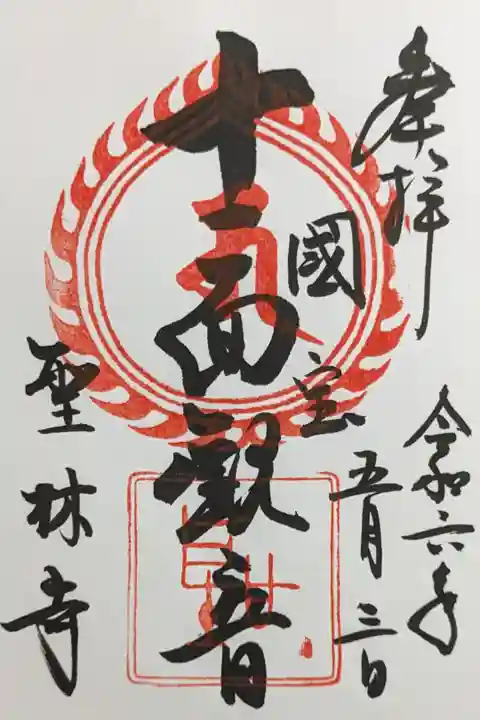 奉拝
令和六年
五月三日
國宝
十一面観音
聖林寺